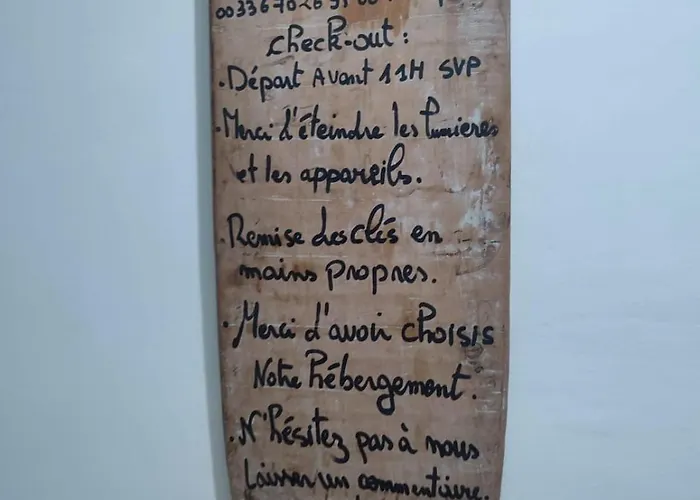 check-out :
• Départ Avant 11H SVP
• Merci d'éteindre les lumieres
et les appareils.
• Remise des clés en
mains propres.
• Merci d'avoir choisis
Notre hébergement.
• N'hésitez pas à nous
laisser un commentaire.